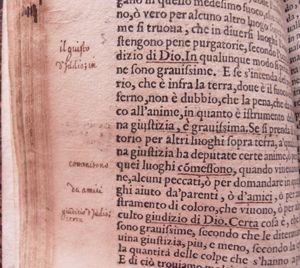 gano in quello medesimo fuoco, che
no, ò vero per alcuno altro luogo
me si truoua, che in diuersi luoghi
stengono pene purgatorie, secondo
dizio di Dio. In qualunque modo si
ne sono grauissime. E se s'intenda
rio, che è infra la terra, doue è il fuoco
ferno, non è dubbio, che la pena, che
co all'anime, in quanto è istrumento
na giustizia, è grauissima. Se si prenda
torio per altri luoghi sopra terra, a'
na giustizia ha deputate certe anime, ò
quei luoghi cõmessono, quando
ne, alcuni peccati, ò per domandare in
ghi aiuto da' parenti, ò d'amici, ò per
stramento di coloro, che viuono, ò per
culto giudizio di Dio. Certa cosa è,
sono grauissime, secondo che le
uina giustizia, più, e meno, secondo la
la quantità delle colpe che s'hanno
E di ciò trouiamo
il giusto
d'Iadizin
comontono
da amici
giudizio d'Iadio,